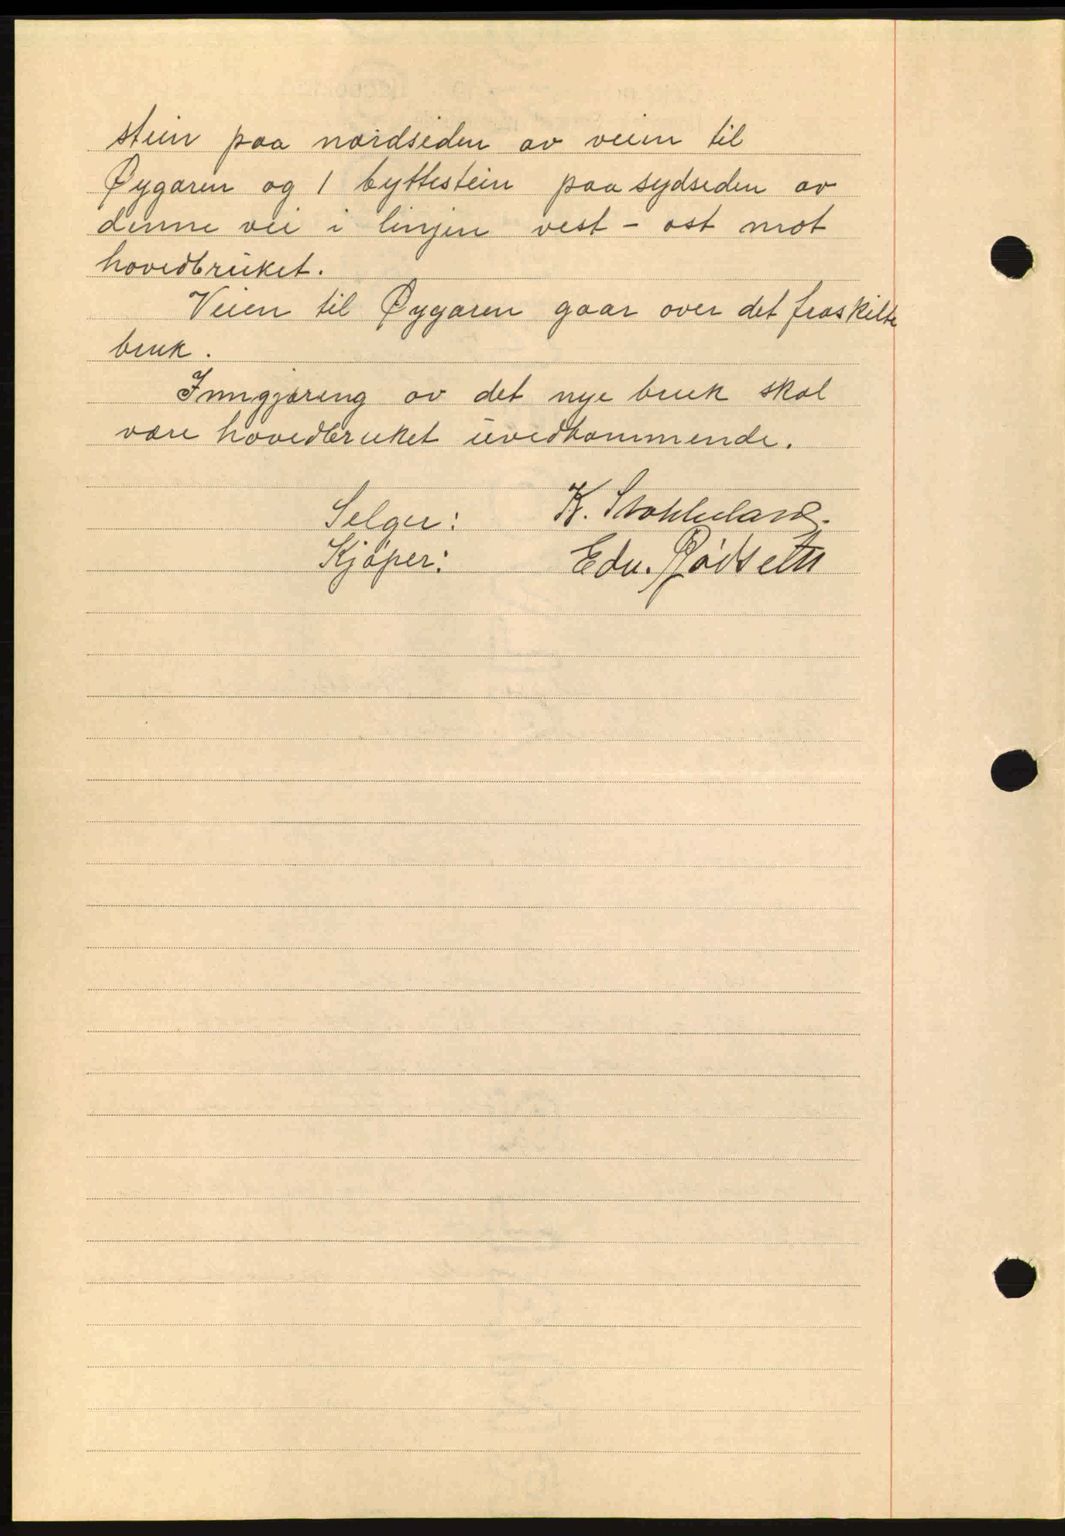 stein paa nordsiden av veien til
Øygaren og 1 byttestein paa sydsiden av
denne vei i linjen vest - ost mot
hovedbruket.
Veien til Øygaren gaar over det fraskilte
bruk.
Inngjæring av det nye bruk skal
være hovedbruket uvedkommende.
Selger: K. Stokkeland.
Kjøper: Edv. Rødseth